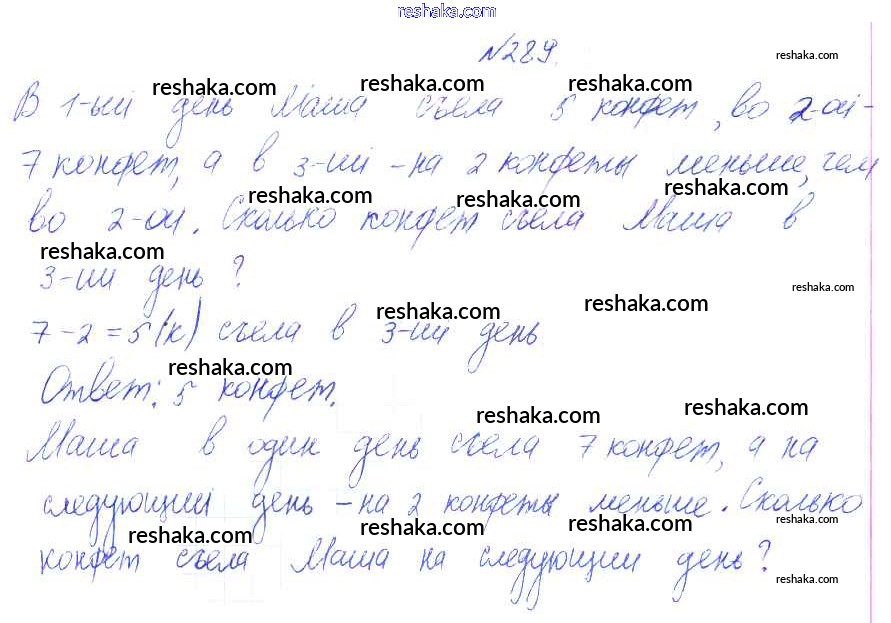 reshaka.com
№289.
reshaka.com
reshaka.com reshaka.com reshaka.com
В 1-ый день Маша съела 5 конфет, во 2-ой-
7 конфет, а в 3-ий - на 2 конфеты меньше, чем
reshaka.com reshaka.com reshaka.com
во 2-ой. Сколько конфет съела Маша в
reshaka.com
3-ий день?
reshaka.com
reshaka.com reshaka.com
7-2=5(к) съела в 3-ий день
reshaka.com
Ответ: 5 конфет.
reshaka.com reshaka.com
Маша в один день съела 7 конфет, а на
следующий день - на 2 конфеты меньше. Сколько
reshaka.com reshaka.com reshaka.com reshaka.com
конфет съела Маша на следующий день?
reshaka.com